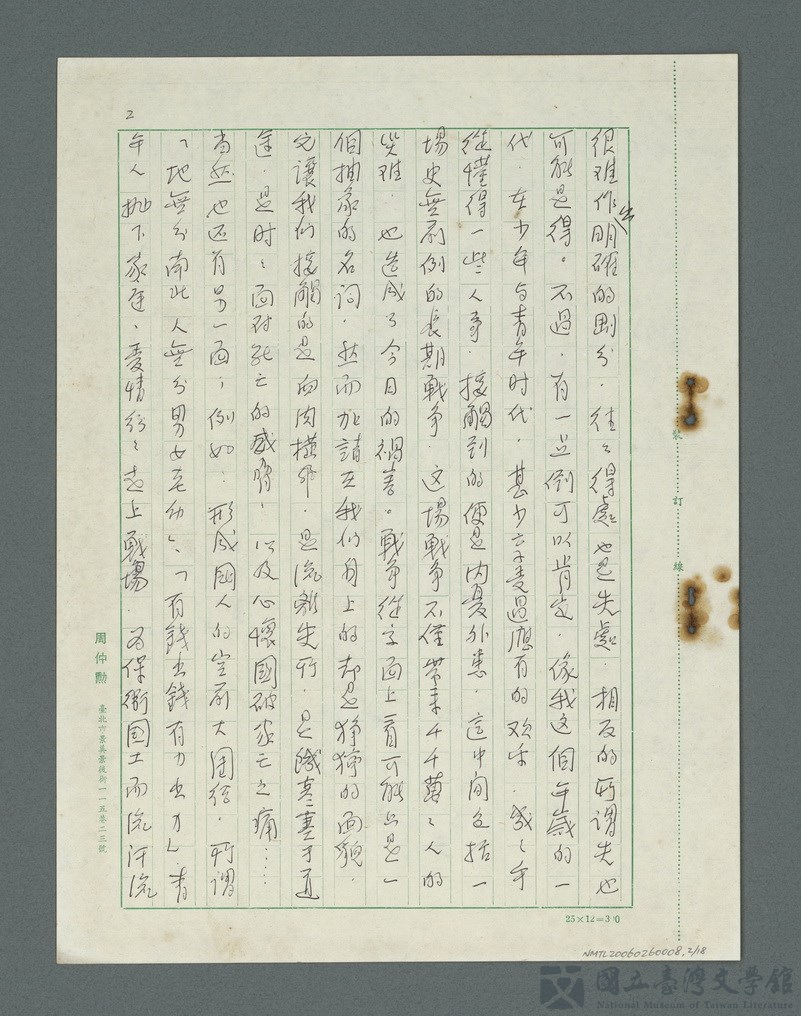 2
很难作出明確的劃分．往々得處也是失處．相反的所谓失也
可能是得。不過．有一点倒可以肯定．像我这個年歲的一
代．在少年与青年时代．甚少享受過应有的欢乐．幾乎
從懂得一些人事．接觸到的便是内憂外患．這中间包括一
場史無前例的長期戰争．这場戰争不僅带来千千萬々人的
災难．也造成了今日的禍害。戰争從字面上看可能只是一
個抽象的名词．然而加諸在我们身上的却是狰狞的面貌．
它讓我们接觸的是血肉横飛．是流離失所．是饑寒
途．是时々面对死亡的威脅．以及心懷國破家亡之痛……
当然也还有另一面，例如：形成國人的空前大團结．所谓
「地無分南北人無分男女老幼」、「有錢出錢有力出力」．青
年人抛下家庭、爱情纷々走上戰場．为保衛國土而流汗流
周仲勳 臺北市景美景後街一一五巷二三號
裝訂線
25×12=300
NMTL20060260008, 2/18
國立臺灣文學館
National Museum of Taiwan Literature